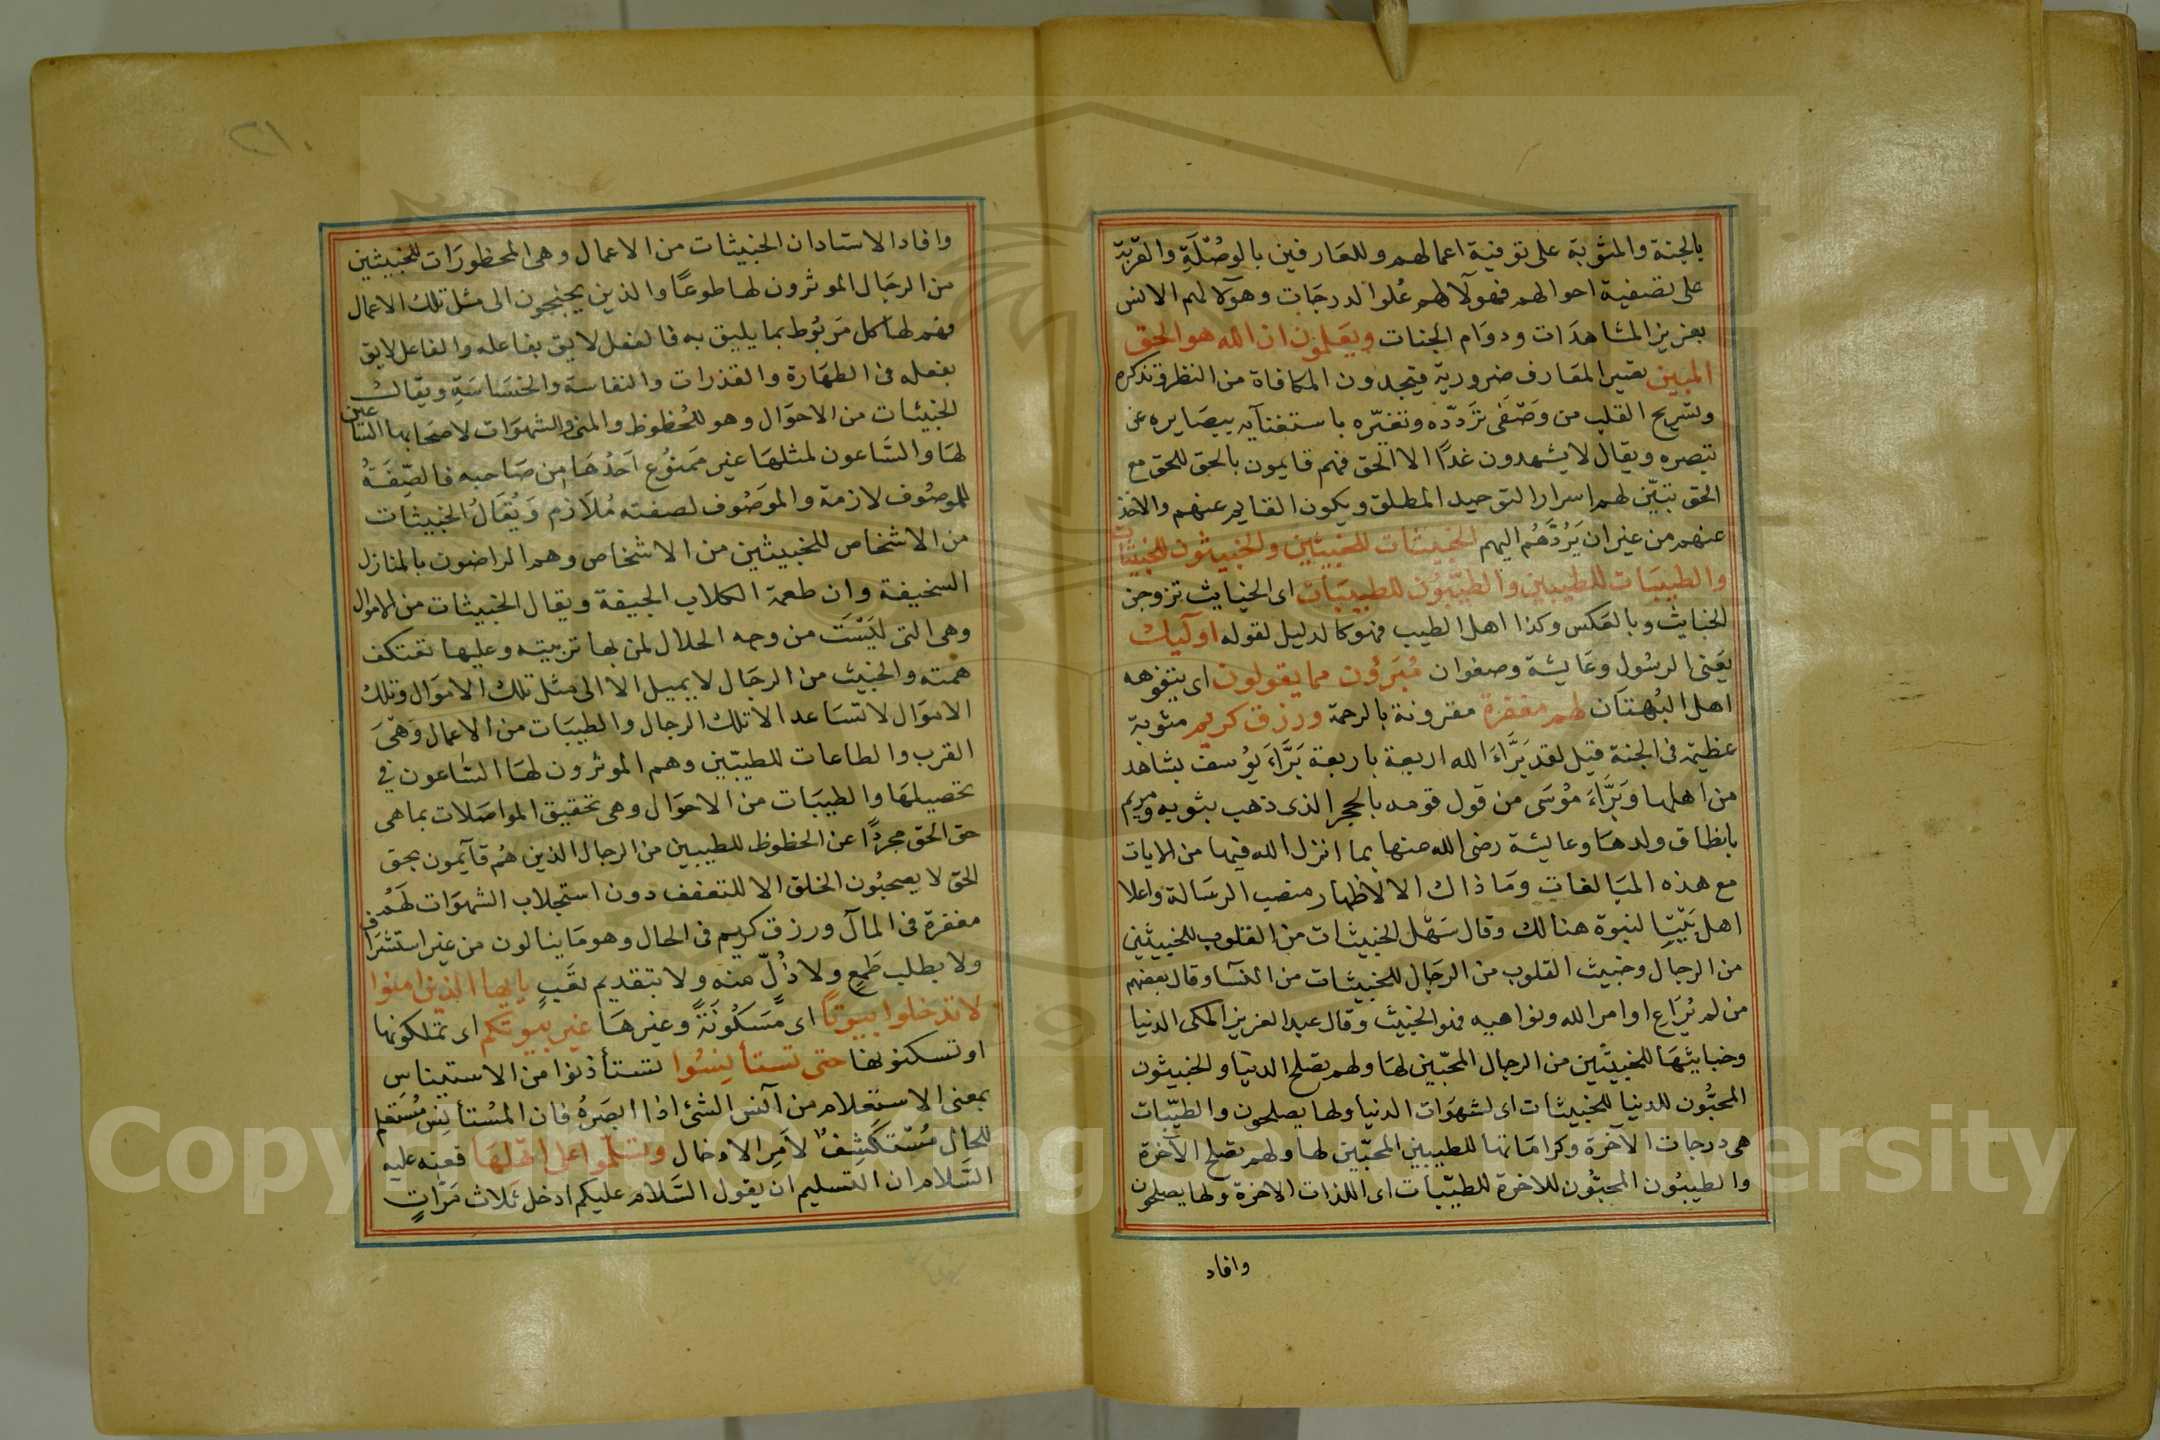 بالجنة والمثوبة على توفية اعمالهم وللعارفين بالوصلة والقربة
على تصفية احوالهم فهولآ لهم علوا لدرجات وهولآ لهم الانس
بعزيز المشاهدات ودوام الجنات ويعلمون ان الله هو الحق
المبين تصير المعارف ضرورية فيجدون المكافاة من النظر وتذكره
وتسريح القلب من وصفى تردده وتغيره باستغنآيه ببصايره عن
تبصره ويقال لا يشهدون غدا الا الحق فهم قايمون بالحق للحق مع
الحق تبين لهم اسرار التوحيد المطلق ويكون القايم عنهم والاخذ
عنهم من غير ان يردهم اليهم الخبيثات للخبيثين والخبيثون للخبيثات
والطيبات للطيبين والطيبون للطيبات اى الخبايث تزوجن
الخبايث وبالعكس وكذا اهل الطيب فهو كالدليل لقوله اولئك
يعنى الرسول وعايشة وصفوان مبرؤن مما يقولون اى يتفوهه
اهل البهتان لهم مغفرة مقرونة بالرحمة ورزق كريم مثوبة
عظيمة فى الجنة قيل لقد برأ الله اربعة باربعة برأ يوسف بشاهد
من اهلها وبرأ موسى من قول قومه بالحجر الذى ذهب بثوبه ومريم
بانطاق ولدها وعايشة رضى الله عنها بما انزل الله فيها من الايات
مع هذه المبالغات وما ذاك الا لاظهار منصب الرسالة واعلا
اهل بيت النبوة هنالك وقال سهل الخبيثات من القلوب للخبيثين
من الرجال وخبيث القلوب من الرجال للخبيثات من النسآ وقال بعضهم
من لم يراع اوامر الله ونواهيه فهو الخبيث وقال عبد العزيز المكى الدنيا
وخبايثها للخبيثين من الرجال المحبين لها ولهم تصلح الدنيا والخبيثون
المحبون للدنيا للخبيثات اى لشهوات الدنيا ولها يصلحون والطيبات
هى درجات الآخرة وكراماتها للطيبين المحبين لها ولهم تصلح الآخرة
والطيبون المحبون للاخرة للطيبات اى اللذات الاخرة ولها يصلحون
وافاد
٢١
وافاد الاستاد ان الخبيثات من الاعمال وهى المحظورات للخبيثين
من الرجال المؤثرون لها طوعا والذين يجنحون الى مثل تلك الاعمال
فهم لها كل مربوط بما يليق به فالفعل لايق بفاعله والفاعل لايق
بفعله فى الطهارة والقذرات والنفاسة والخساسة ويقال
الخبيثات من الاحوال وهو للحظوظ والمنى والشهوات لاصحابها الساعين
لها والساعون لمثلها غير ممنوع احدها من صاحبه فالصفة
للموصوف لازمة والموصوف لصفته ملازم ويقال الخبيثات
من الاشخاص للخبيثين من الاشخاص وهم الراضون بالمنازل
السخيفة وان طعمة الكلاب الجيفة ويقال الخبيثات من الاموال
وهى التى ليست من وجه الحلال لمن بها تربيته وعليها تعتكف
همته والخبيث من الرجال لا يميل الا الى مثل تلك الاموال وتلك
الاموال لا تساعد الا تلك الرجال والطيبات من الاعمال وهى
القرب والطاعات للطيبين وهم المؤثرون لها الساعون فى
تحصيلها والطيبات من الاحوال وهى تحقيق المواصلات بما هى
حق الحق مجردا عن الحظوظ للطيبين من الرجال الذين هم قآيمون بحق
الحق لا يصحبون الخلق الا للتعفف دون استجلاب الشهوات لهم
مغفرة فى المآل ورزق كريم فى الحال وهو ما ينالون من غير استشراف
ولا بطلب طمع ولا ذل منه ولا بتقديم تعب يايها الذين امنوا
لا تدخلوا بيوتا اى مسكونة وغيرها غير بيوتكم اى تملكونها
او تسكنونها حتى تستأنسوا تستأذنوا من الاستيناس
بمعنى الاستعلام من آنس الشئ اذا ابصره فان المستأنس مستعلم
للحال مستكشف لامر الادخال وتسلموا على اهلها فعنه عليه
السلام ان التسليم ان يقول السلام عليكم ادخل ثلاث مرات
Copyright © King Saud University